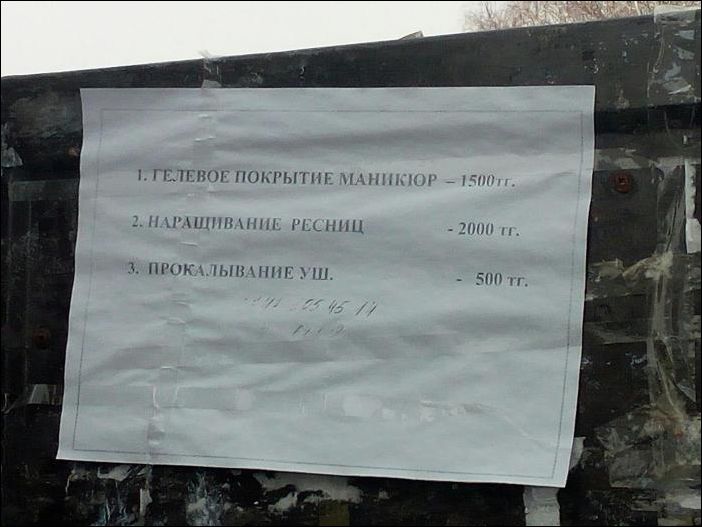 1. ГЕЛЕВОЕ ПОКРЫТИЕ МАНИКЮР – 1500тг.
2. НАРАЩИВАНИЕ РЕСНИЦ - 2000 тг.
3. ПРОКАЛЫВАНИЕ УШ. - 500 тг.
05 45 14